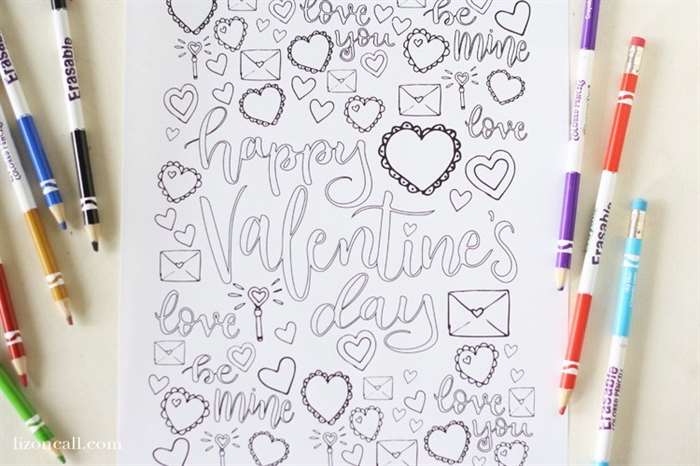 love you
be mine
love
happy
Valentine's
day
love
be mine
love you
Erasable
Erasable
Erasable
Erasable
COLORED PENCILS
lizoncall.com